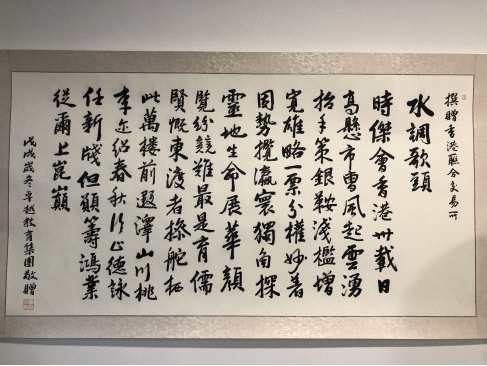 撰贈香港聯合交易所
水調歌頭
時傑會香港卅載日
高懸市曹風起雲湧
抬手策銀鞍淺檻增
寬雄略一票分權妙著
因勢攬瀛寰獨角探
靈地生命展華顏
覽紛競難最是育儒
賢慨東渡者操舵栖
此萬樓前遐澤山川桃
李迩紹春秋行止德詠
任新牋但願籌鴻業
從爾上崑巔
戊戌歲冬卓越教育集團敬贈